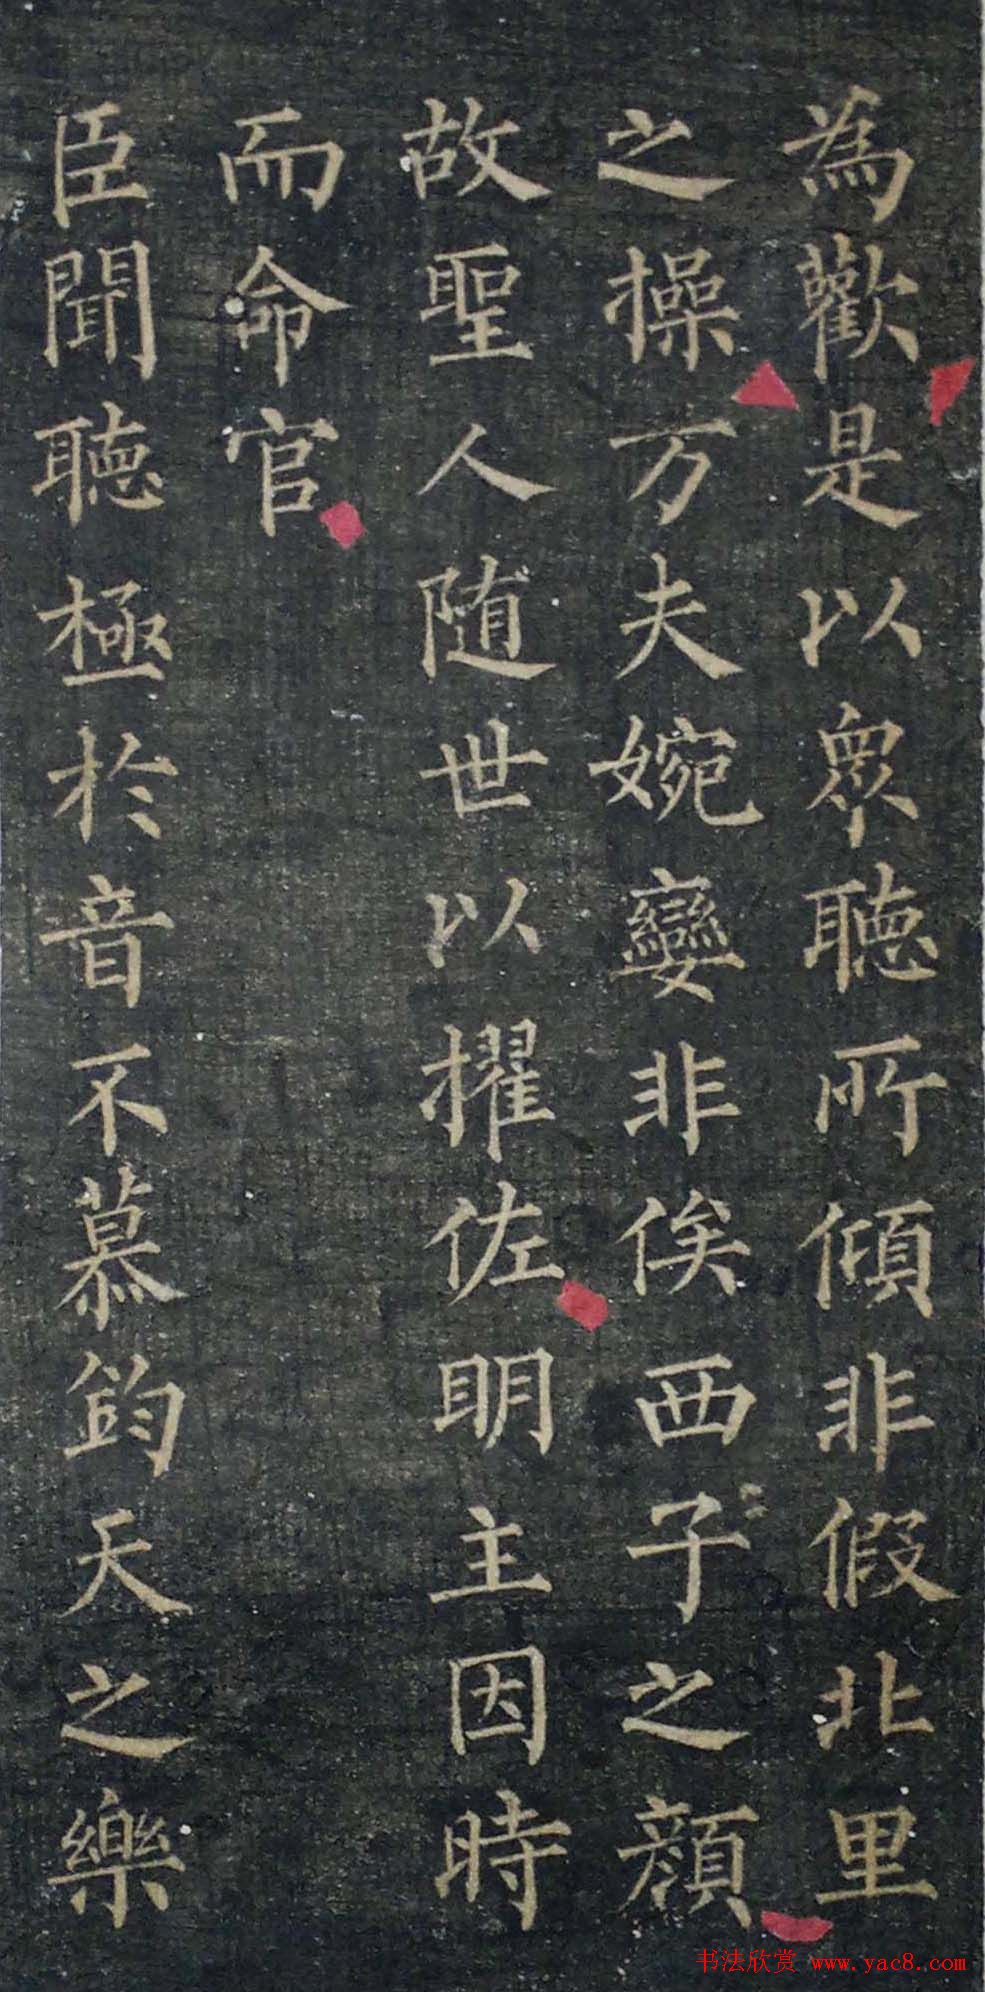 為歡是以眾聽所傾非假北里
之操万夫婉孌非俟西子之顏
故聖人随世以擢佐明主因時
而命官
臣聞聴極於音不慕鈞天之樂
书法欣赏 www.yac8.com